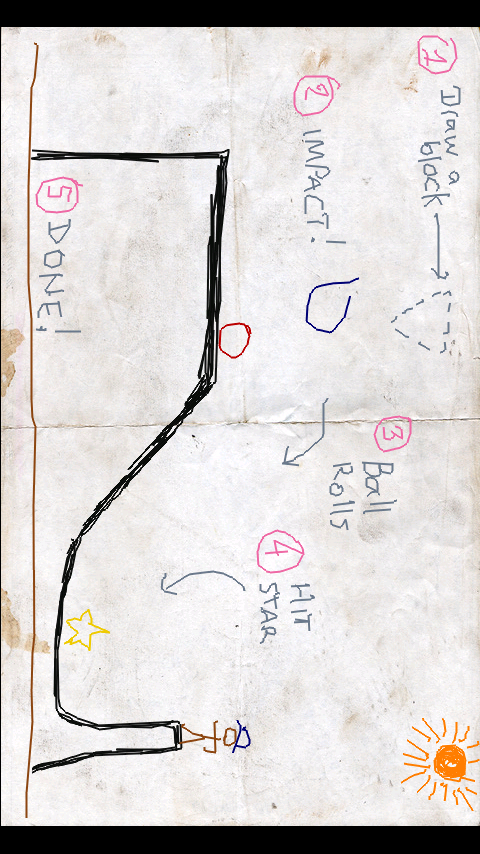 1
Draw a
block
2
IMPACT!
3
Ball
Rolls
4
HIT
STAR
5
DONE!